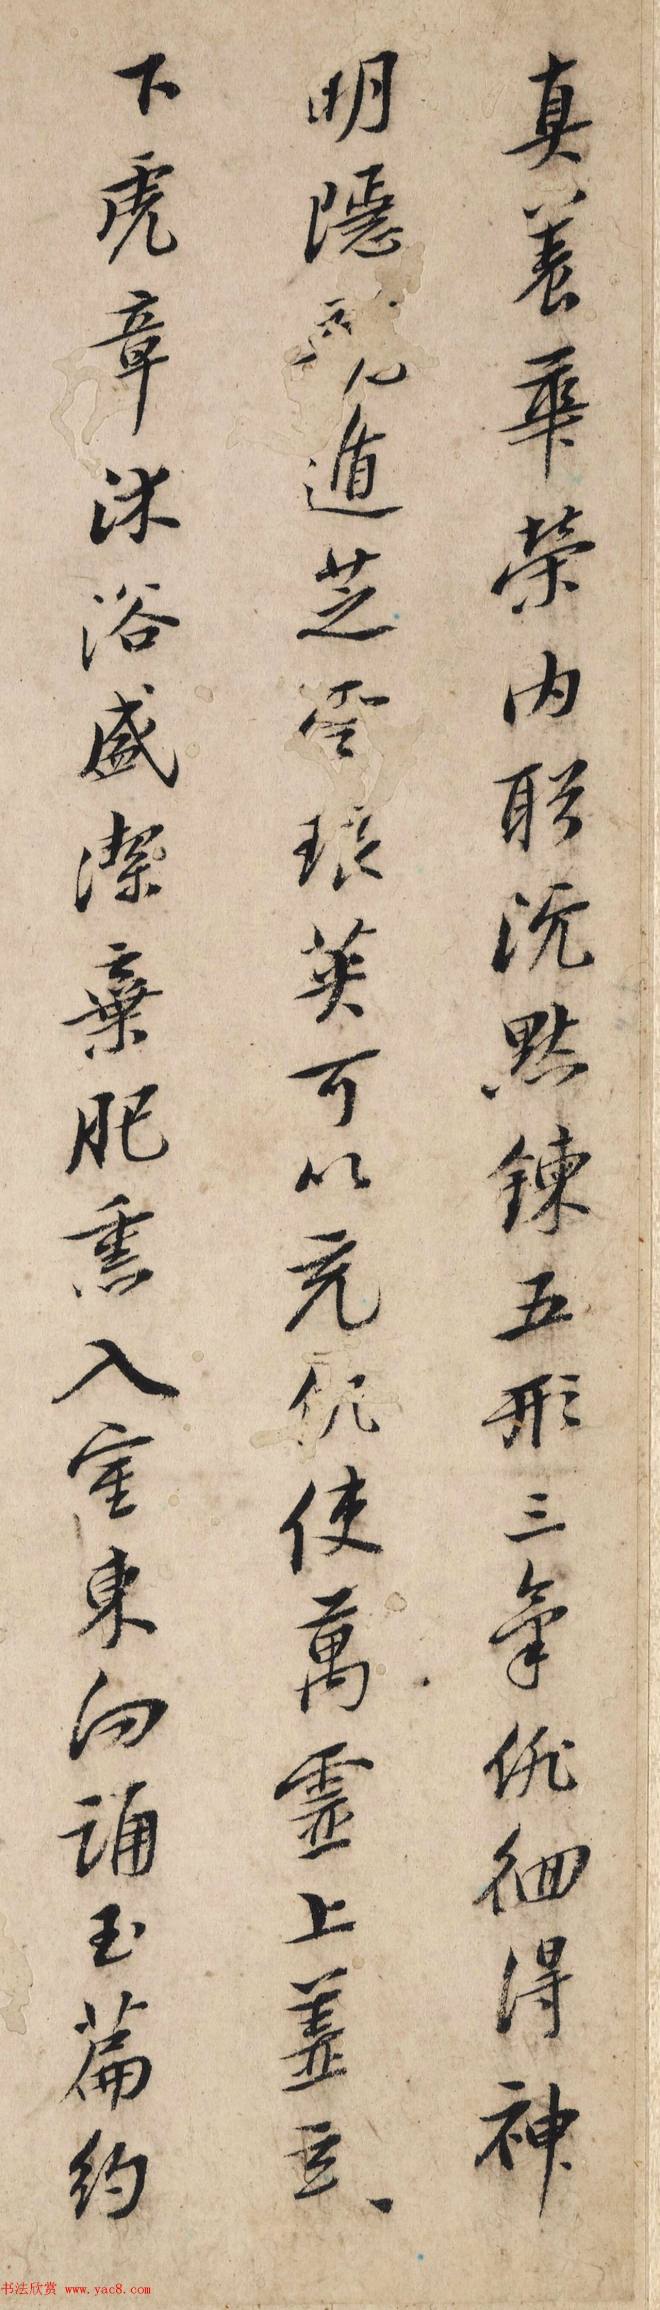 真養華榮內盼沉默鍊五形三氣徘徊得神
明隱龍遁芝雲琅英可以充飢使萬靈上蓋玄々
下虎章沐浴盛潔棄肥薰入室東向誦玉篇約
书法欣赏 www.yac8.com